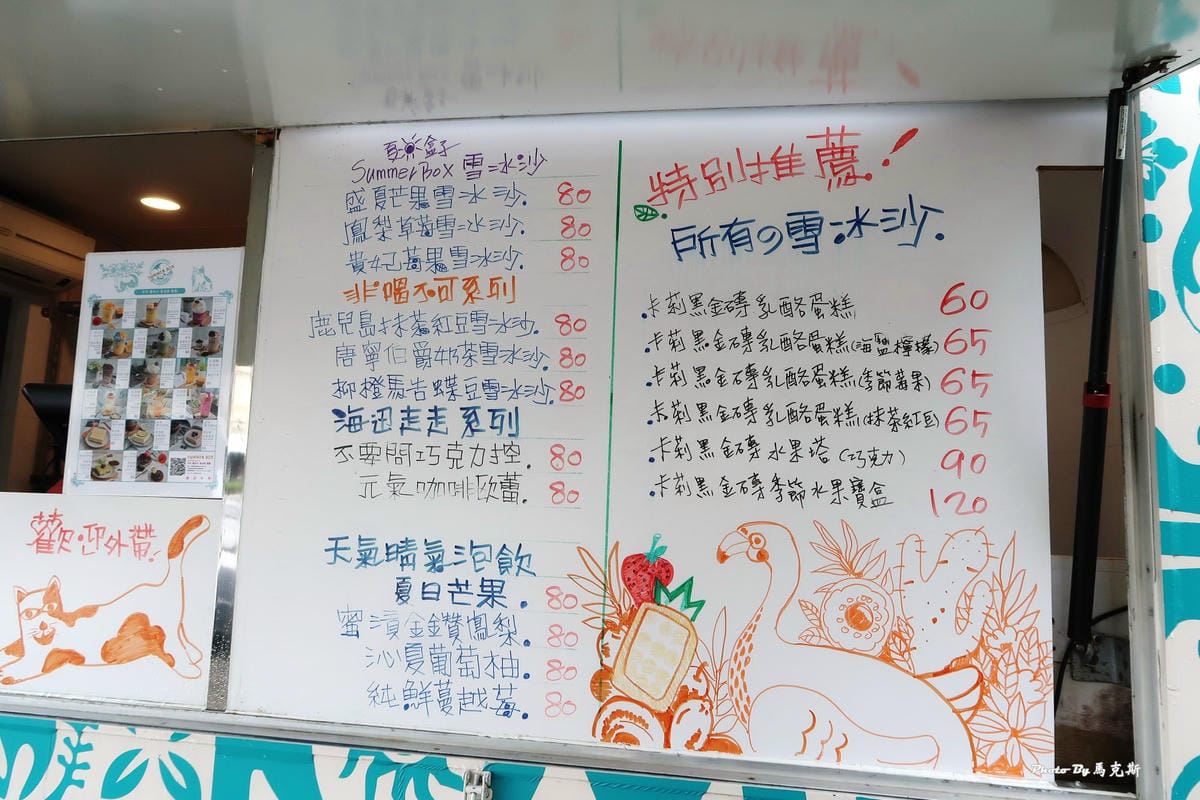 夏日盒子
Summer Box 雪冰沙
盛夏芒果雪冰沙. 80
鳳梨草莓雪冰沙. 80
貴妃莓果雪冰沙. 80
非喝不可系列
鹿兒島抹茶紅豆雪冰沙. 80
唐寧伯爵奶茶雪冰沙. 80
柳橙馬告蝶豆雪冰沙. 80
海邊走走系列
不要問巧克力控. 80
元氣咖啡歐蕾. 80
天氣晴氣泡飲
夏日芒果. 80
蜜漬金鑽鳳梨. 80
沁夏葡萄柚. 80
純鮮蔓越莓. 80
特別推薦!
所有の雪冰沙.
.卡莉黑金磚乳酪蛋糕 60
.卡莉黑金磚乳酪蛋糕(海鹽檸檬) 65
.卡莉黑金磚乳酪蛋糕(季節莓果) 65
.卡莉黑金磚乳酪蛋糕(抹茶紅豆) 65
.卡莉黑金磚水果塔(巧克力) 90
.卡莉黑金磚季節水果寶盒 120
歡迎外帶!
Photo By 馬克斯